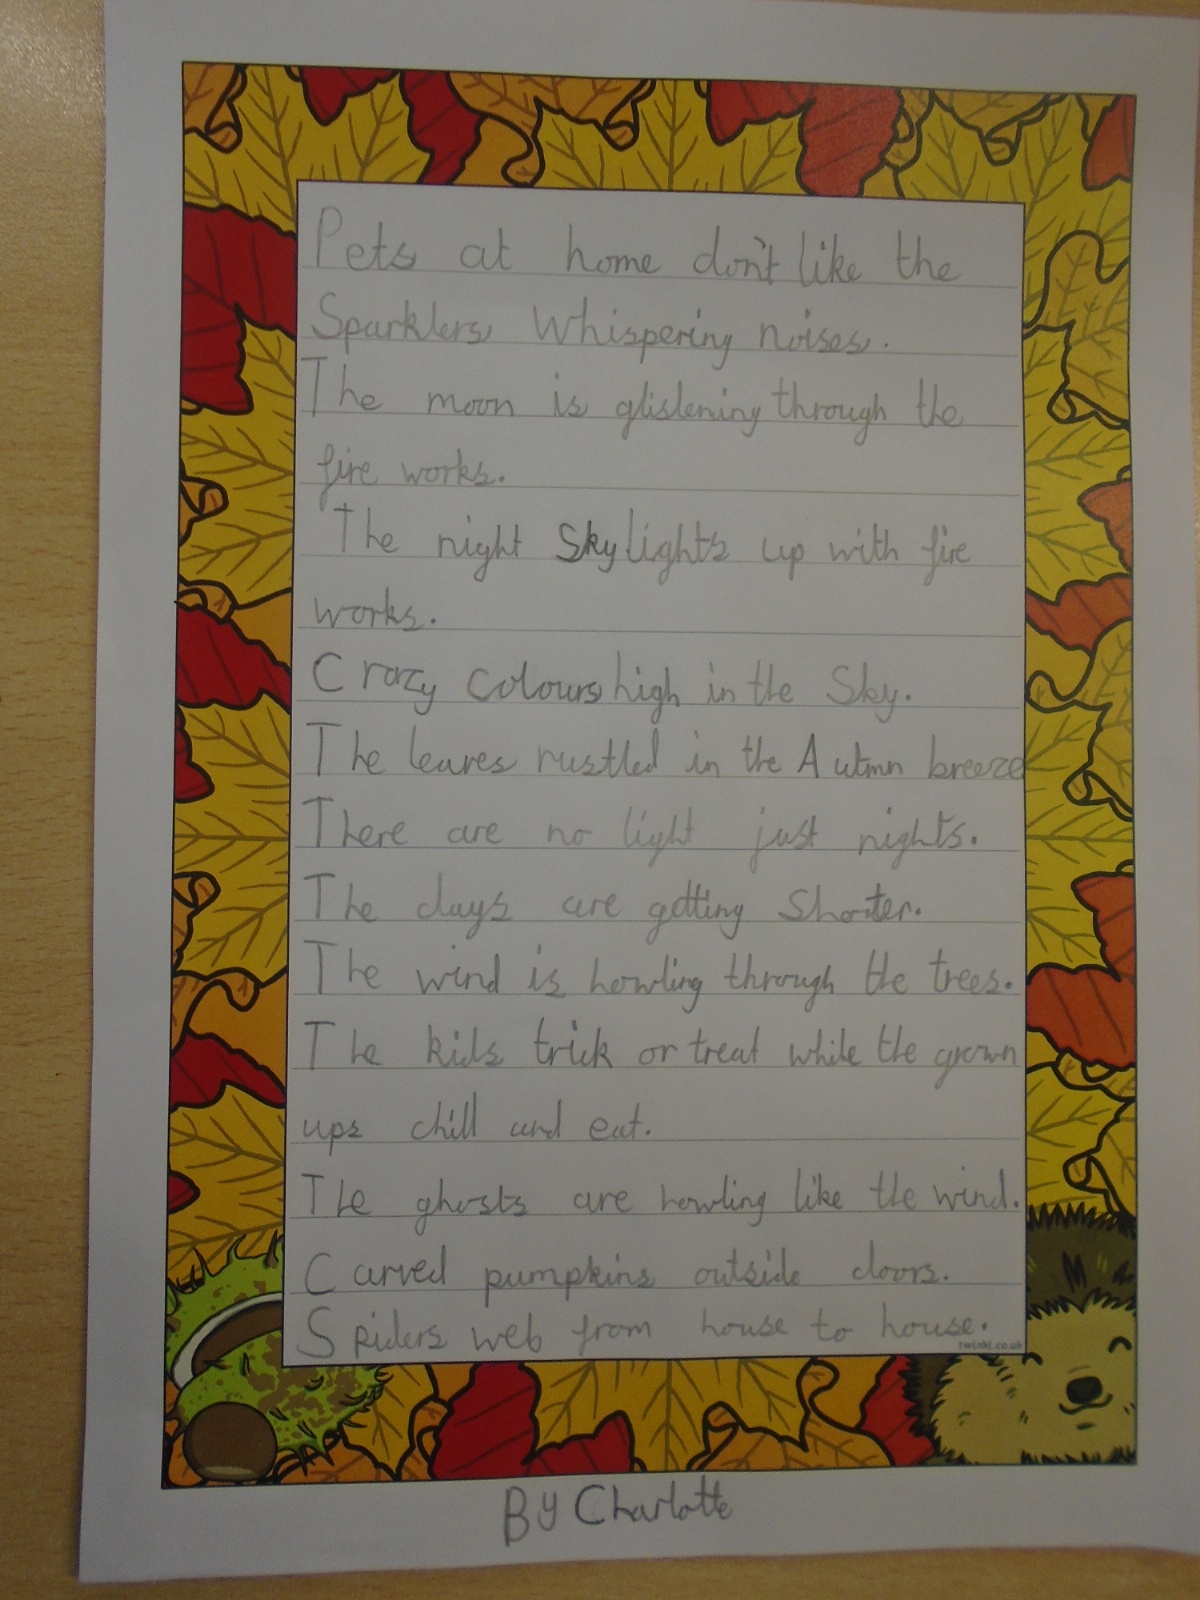 Pets at home don't like the
Sparklers Whispering noises.
The moon is glistening through the
fire works.
The night Sky lights up with fire
works.
Crazy Colours high in the Sky.
The leaves rustled in the Autmn breeze
There are no light just nights.
The days are getting Shorter.
The wind is howling through the trees.
The kids trick or treat while the grown
ups chill and eat.
The ghosts are howling like the wind.
Carved pumpkins outside doors.
Spiders web from house to house.
twinkl.co.uk
By Charlotte